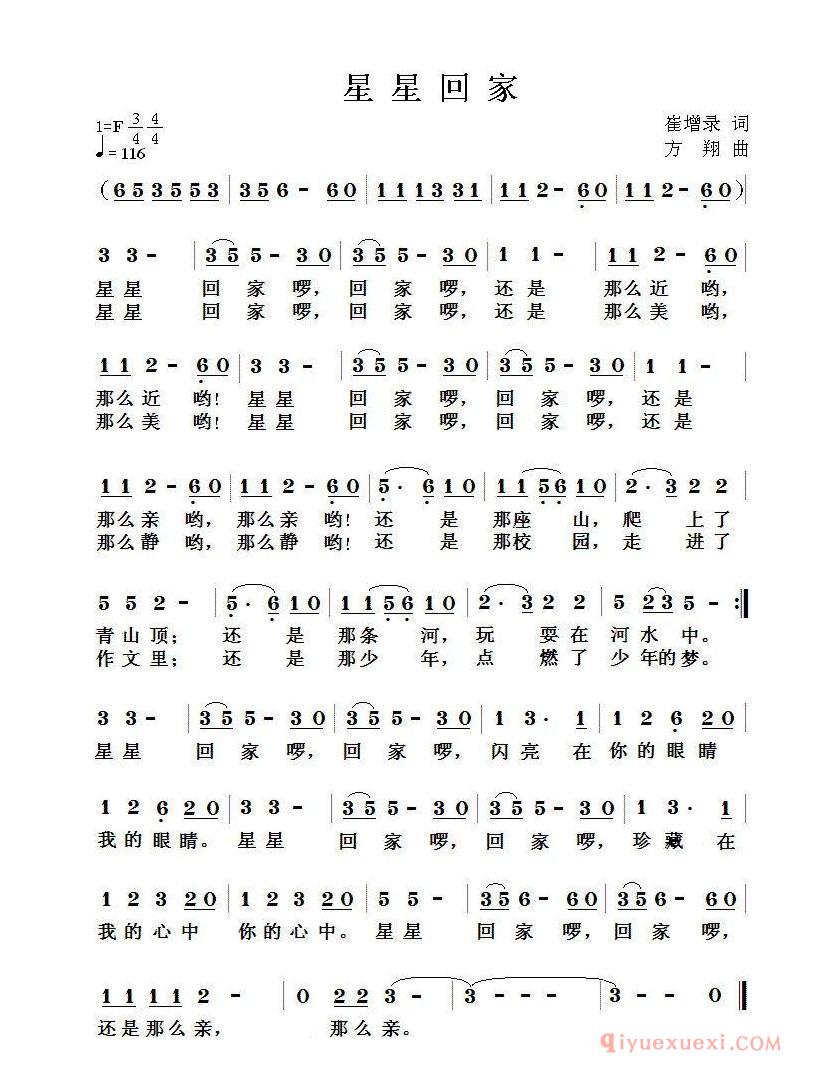 星星回家
1=F 3/4 4/4
崔增录 词
♩=116
方 翔 曲
(6 5 3 5 5 3 | 3 5 6 - 6 0 | 1 1 1 3 3 1 | 1 1 2 - 6 0 | 1 1 2 - 6 0)
3 3 - | 3 5 5 - 3 0 | 3 5 5 - 3 0 | 1 1 - | 1 1 2 - 6 0
星星 回家啰，回家啰，还是 那么近哟，
星星 回家啰，回家啰，还是 那么美哟，
1 1 2 - 6 0 | 3 3 - | 3 5 5 - 3 0 | 3 5 5 - 3 0 | 1 1 -
那么近哟！星星 回家啰，回家啰，还是
那么美哟！星星 回家啰，回家啰，还是
1 1 2 - 6 0 | 1 1 2 - 6 0 | 5· 6 1 0 | 1 1 5 6 1 0 | 2· 3 2 2
那么亲哟，那么亲哟！还 是 那座 山，爬 上了
那么静哟，那么静哟！还 是 那校 园，走 进了
5 5 2 - | 5· 6 1 0 | 1 1 5 6 1 0 | 2· 3 2 2 | 5 2 3 5 - :|
青山顶；还 是 那条 河，玩 耍在河水中。
作文里；还 是 那少 年，点 燃了少年的梦。
3 3 - | 3 5 5 - 3 0 | 3 5 5 - 3 0 | 1 3· 1 | 1 2 6 2 0
星星 回家啰，回家啰，闪亮 在你的眼睛
1 2 6 2 0 | 3 3 - | 3 5 5 - 3 0 | 3 5 5 - 3 0 | 1 3· 1
我的眼睛。星星 回家啰，回家啰，珍藏 在
1 2 3 2 0 | 1 2 3 2 0 | 5 5 - | 3 5 6 - 6 0 | 3 5 6 - 6 0
我的心中 你的心中。星星 回家啰，回家啰，
1 1 1 1 2 - | 0 2 2 3 - | 3 - - | 3 - 0 ‖
还是那么亲， 那么亲。
qiyuexuexi.com 奇乐学习